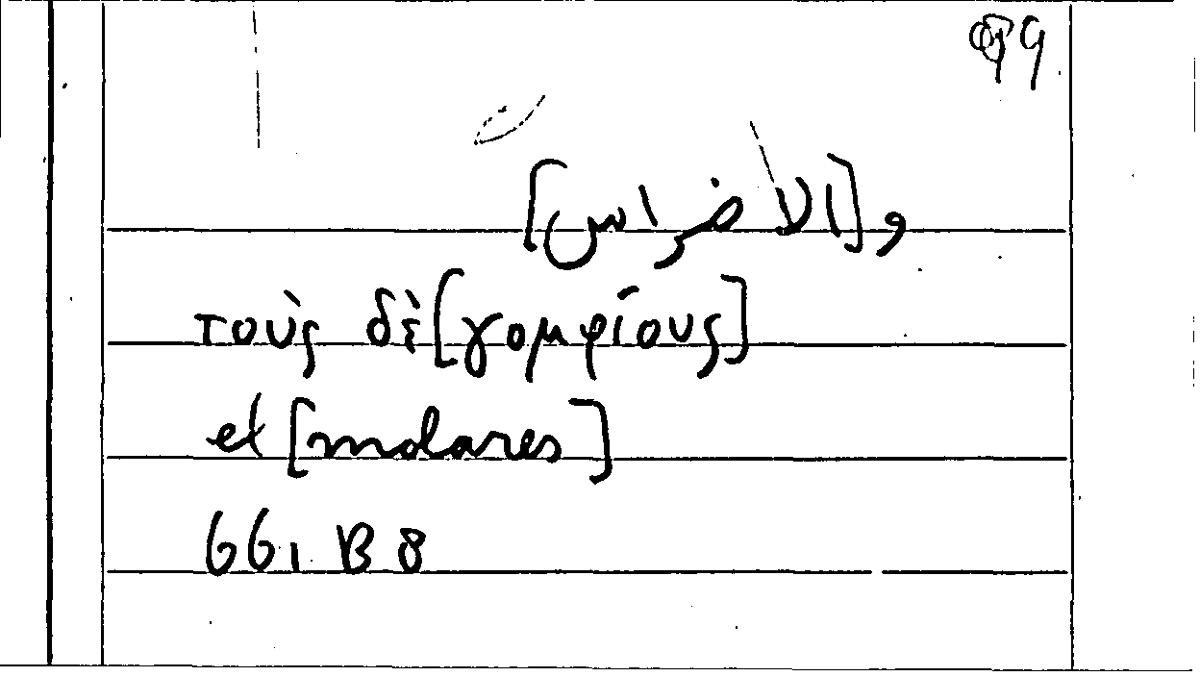 و[الاضراس]
τοὺς δὲ [γομφίους]
et [molares]
661 B 8